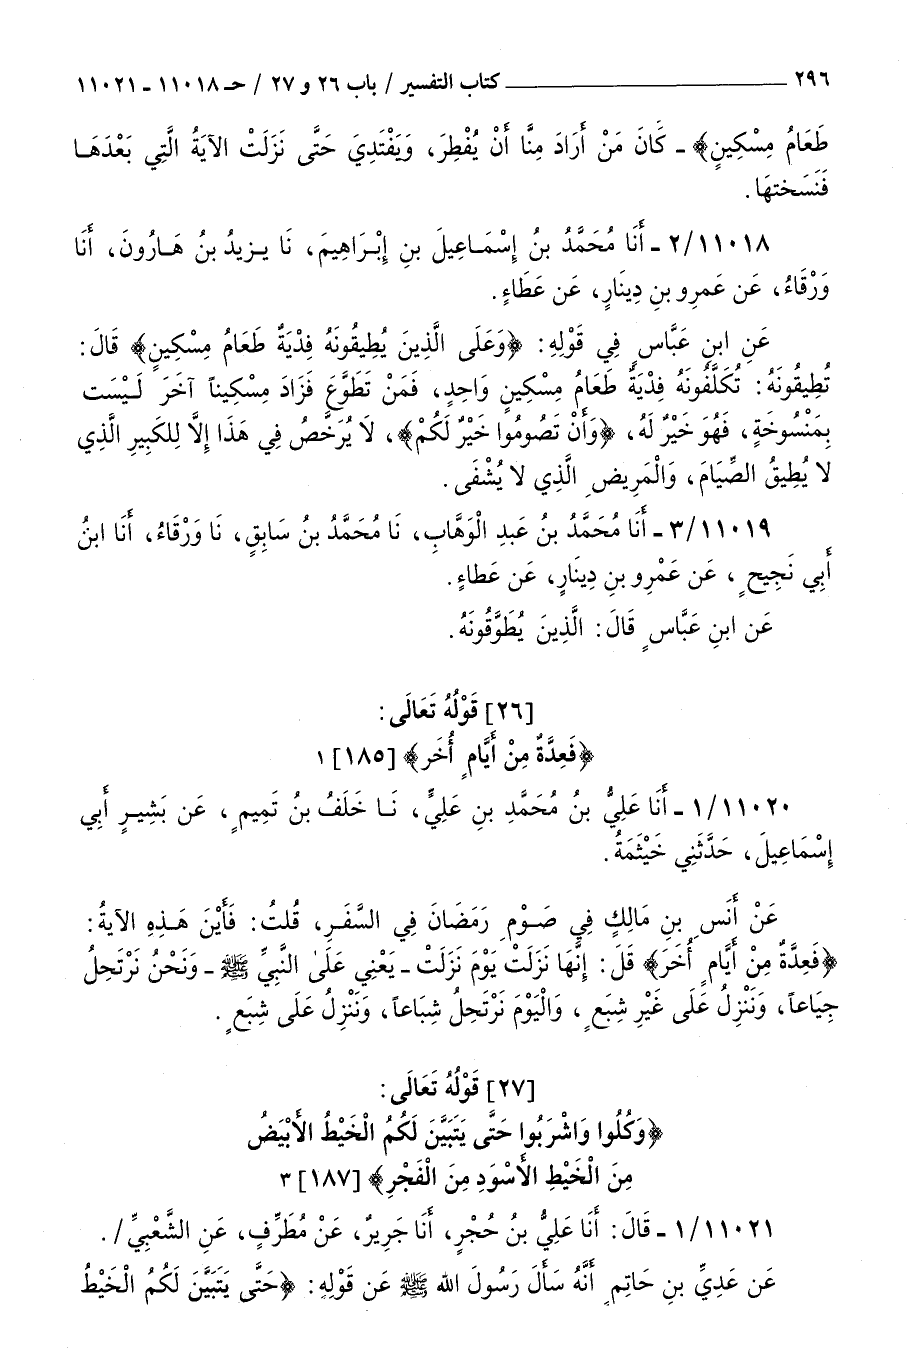 ٢٩٦ ـــــــــــــــــــــ كتاب التفسير / باب ٢٦ و ٢٧ / حـ ١١٠١٨ ـ ١١٠٢١
طَعَامُ مِسْكِينٍ﴾ ـ كَانَ مَنْ أَرَادَ مِنَّا أَنْ يُفْطِرَ، وَيَفْتَدِيَ حَتَّى نَزَلَتْ الآيَةُ الَّتِي بَعْدَهَا
فَنَسَختهَا.
٢/١١٠١٨ ـ أَنَا مُحَمَّدُ بنُ إِسْمَـاعِيلَ بنِ إِبْـرَاهِيمَ، نَا يـزيدُ بنُ هَـارُونَ، أَنَا
وَرْقَاءُ، عَن عَمرِو بنِ دِينَارٍ، عَن عَطَاءٍ.
عَنِ ابنِ عَبَّاسٍ فِي قَوْلِهِ: ﴿وَعَلَى الَّذِينَ يُطِيقُونَهُ فِدْيَةٌ طَعَامُ مِسْكِينٍ﴾ قَالَ:
تُطِيقُونَهُ: تُكَلَّفُونَهُ فِدْيَةٌ طَعَامُ مِسْكِينٍ وَاحِدٍ، فَمَنْ تَطَوَّعَ فَزَادَ مِسْكِيناً آخَرَ لَـيْسَت
بِمَنْسُوخَةٍ، فَهُوَ خَيْرٌ لَهُ، ﴿وَأَنْ تَصُومُوا خَيْرٌ لَكُمْ﴾، لَا يُرَخَّصُ فِي هَذَا إِلَّا لِلكَبِيرِ الَّذِي
لا يُطِيقُ الصِّيَامَ، وَالْمَرِيضِ الَّذِي لا يُشْفَى.
٣/١١٠١٩ ـ أَنَا مُحَمَّدُ بنُ عَبدِ الْوَهَّابِ، نَا مُحَمَّدُ بنُ سَابِقٍ، نَا وَرْقَاءُ، أَنَا ابنُ
أَبِي نَجِيحٍ، عَن عَمْرِو بنِ دِينَارٍ، عَن عَطاءٍ.
عَن ابنِ عَبَّاسٍ قَالَ: الَّذِينَ يُطَوَّقُونَهُ.
[٢٦] قَوْلُهُ تَعَالَى:
﴿فَعِدَّةٌ مِنْ أَيَّامٍ أُخَر﴾ [١٨٥] ١
١/١١٠٢٠ ـ أَنَا عَلِيُّ بنُ مُحَمَّدِ بنِ عَلِيٍّ، نَـا خَلَفُ بنُ تَمِيمٍ، عَن بَشِيـرٍ أَبِي
إِسْمَاعِيلَ، حَدَّثَنِي خَيْثَمَةُ.
عَنْ أَنَسِ بنِ مَالِكٍ فِي صَـوْمِ رَمَضَانَ فِي السَّفَـرِ، قُلتُ: فَأَيْنَ هَـذِهِ الآيةُ:
﴿فَعِدَّةٌ مِنْ أَيَّامٍ أُخَرَ﴾ قَلَ: إِنَّهَا نَزَلَتْ يَوْمَ نَزَلَتْ ـ يَعْنِي عَلَى النَّبِيِّ ﷺ ـ وَنَحْنُ نَرْتَحِلُ
جِيَاعاً، وَنَنْزِلُ عَلَى غَيْرِ شِبَعٍ، وَالْيَوْمَ نَرْتَحِلُ شِبَاعاً، وَنَنْزِلُ عَلَى شِبَعٍ.
[٢٧] قَوْلُهُ تَعَالَى:
﴿وَكُلُوا وَاشْرَبُوا حَتَّى يَتَبَيَّنَ لَكُمُ الْخَيْطُ الأَبْيَضُ
مِنَ الْخَيْطِ الأَسْوَدِ مِنَ الْفَجْرِ﴾ [١٨٧] ٣
١/١١٠٢١ ـ قَالَ: أَنَا عَلِيُّ بنُ حُجْرٍ، أَنَا جَرِيرٌ، عَنْ مُطَرِّفٍ، عَنِ الشَّعْبِيِّ/.
عَن عَدِيِّ بنِ حَاتِمٍ أَنَّهُ سَأَلَ رَسُولَ الله ﷺ عَن قَوْلِهِ: ﴿حَتَّى يَتَبَيَّنَ لَكُمُ الْخَيْطُ